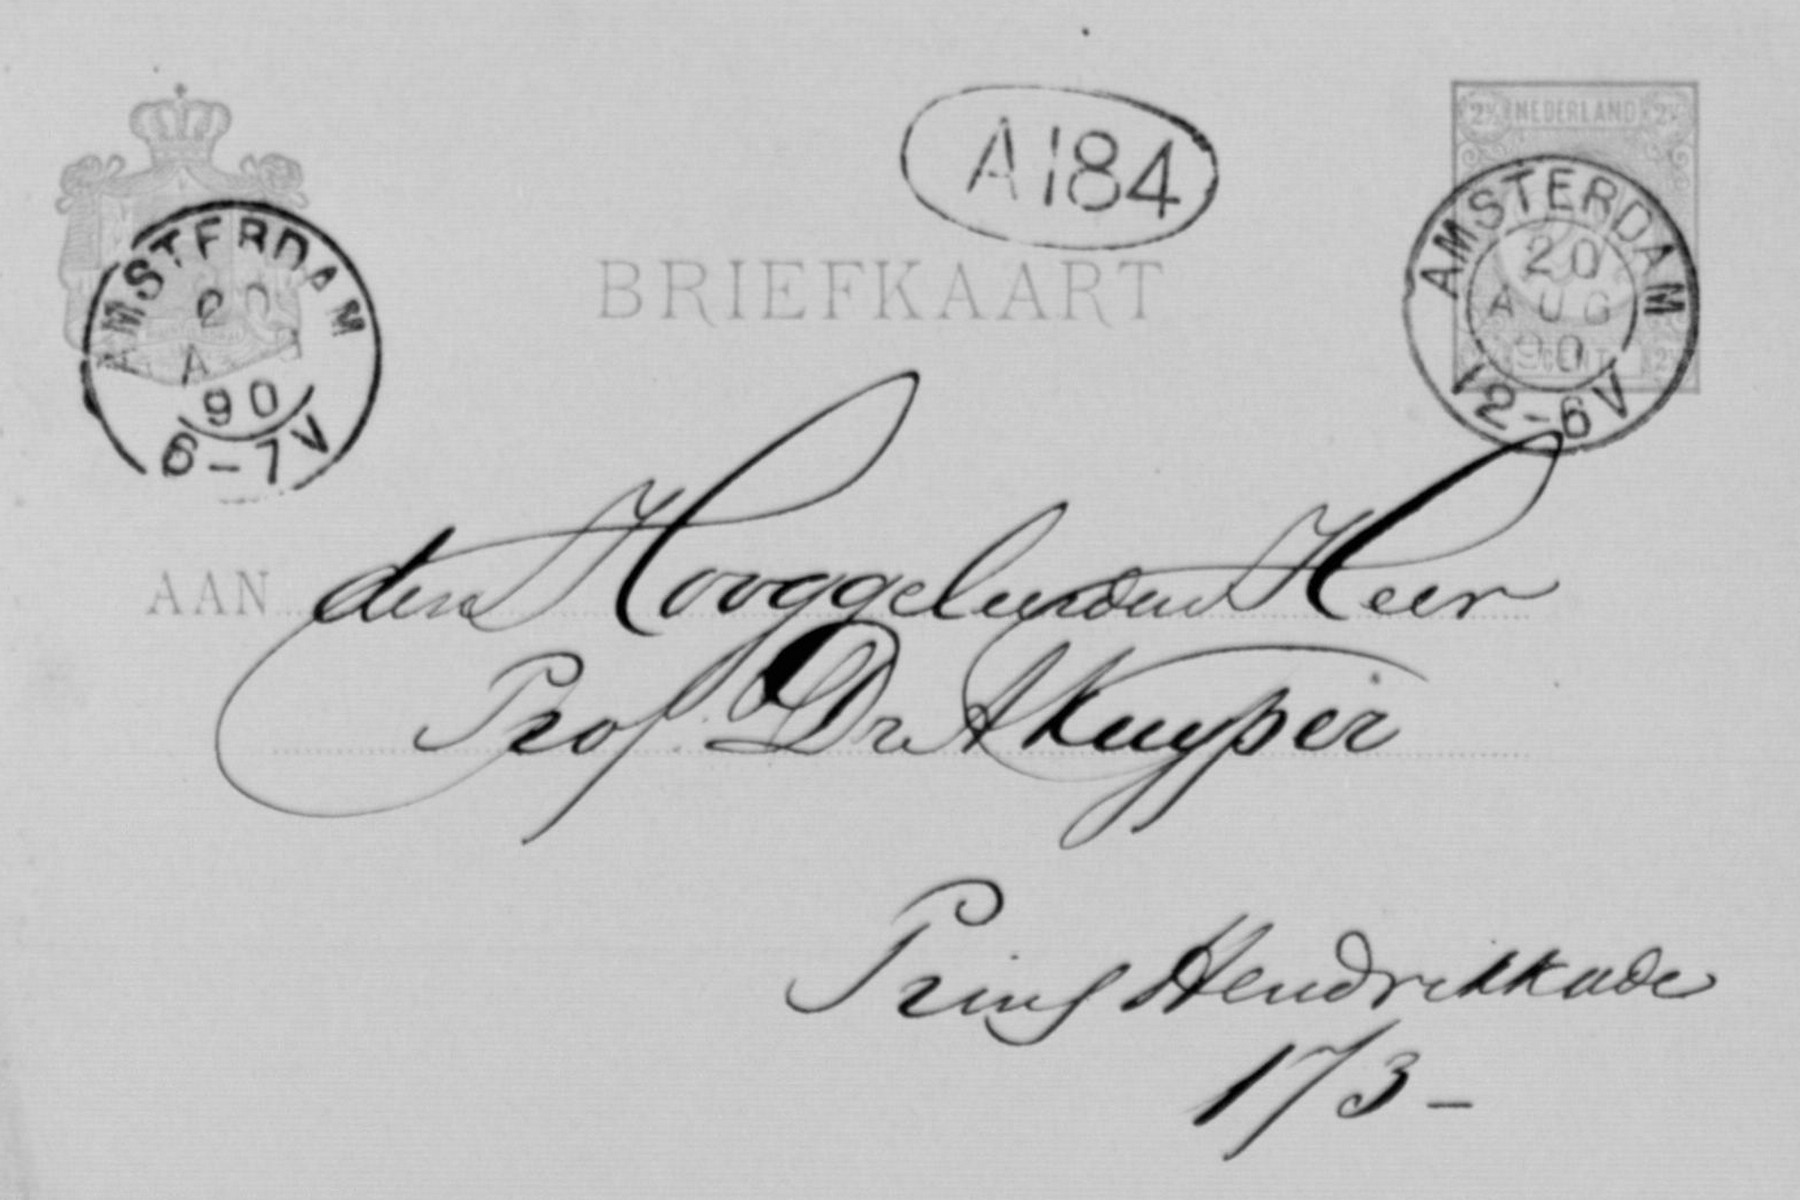 A184
2½ NEDERLAND 2½
AMSTERDAM
20
AUG
90
12-6V
AMSTERDAM
20
A
90
6-7V
BRIEFKAART
AAN den Hooggeleerden Heer
Prof. Dr A Kuyper
Prins Hendrikkade
173-